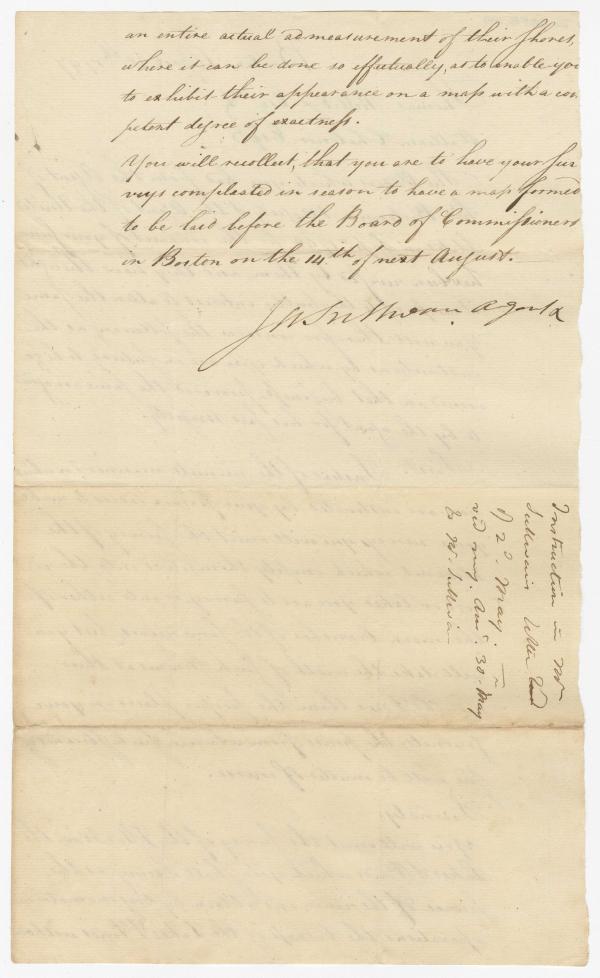 an entire actual admeasurement of their Shores,
where it can be done so effectually, as to enable you
to exhibit their appearance on a map with a com
petent degree of exactness.
You will recollect, that you are to have your Sur
veys completed in season to have a map formed
to be laid before the Board of Commissioners
in Boston on the 14th of next August.
Ja Sullivan agent &
Instruction in Mr
Sullivan's letter
of 2d. May.
vid my Ansr. 30 May
to Mr. Sullivan